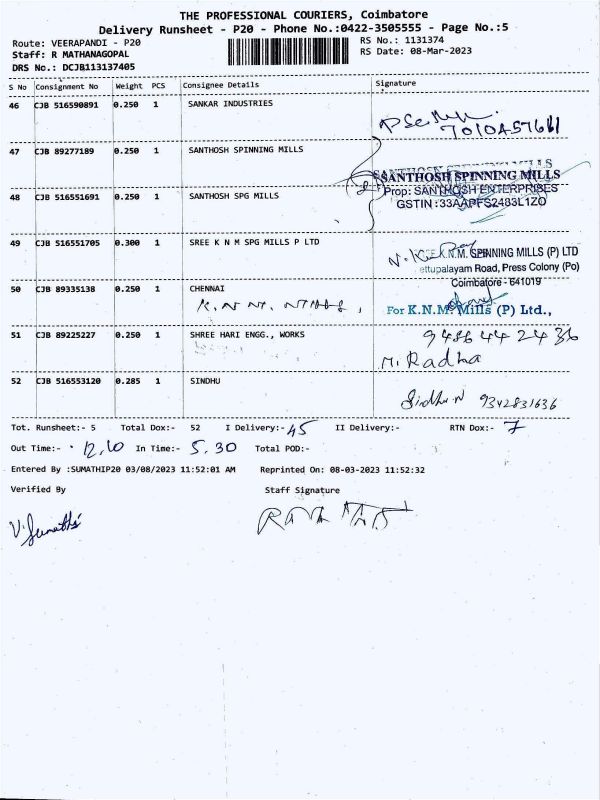 THE PROFESSIONAL COURIERS, Coimbatore
Delivery Runsheet - P20 - Phone No.:0422-3505555 - Page No.:5
Route: VEERAPANDI - P20 RS No.: 1131374
Staff: R MATHANAGOPAL RS Date: 08-Mar-2023
DRS No.: DCJB113137405
S No Consignment No Weight PCS Consignee Details Signature
46 CJB 516590891 0.250 1 SANKAR INDUSTRIES
47 CJB 89277189 0.250 1 SANTHOSH SPINNING MILLS
SANTHOSH SPINNING MILLS
Prop: SANTHOSH ENTERPRISES
48 CJB 516551691 0.250 1 SANTHOSH SPG MILLS GSTIN :33AAPFS2483L1ZO
49 CJB 516551705 0.300 1 SREE K N M SPG MILLS P LTD
K.N.M. SPINNING MILLS (P) LTD
ettupalayam Road, Press Colony (Po)
Coimbatore - 641019
50 CJB 89335138 0.250 1 CHENNAI
For K.N.M. Mills (P) Ltd.,
51 CJB 89225227 0.250 1 SHREE HARI ENGG., WORKS 9486442436
M. Radha
52 CJB 516553120 0.285 1 SINDHU
Sindhu N 9342831636
Tot. Runsheet:- 5 Total Dox:- 52 I Delivery:- 45 II Delivery:- RTN Dox:- 7
Out Time:- 12.10 In Time:- 5.30 Total POD:-
Entered By :SUMATHIP20 03/08/2023 11:52:01 AM Reprinted On: 08-03-2023 11:52:32
Verified By Staff Signature
V. Sumathi